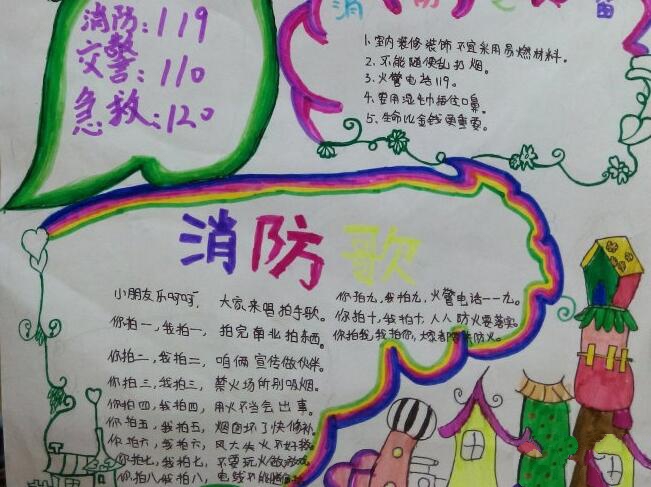 消防:119
交警:110
急救:120
消防
1.室内装修装饰不宜采用易燃材料。
2.不能随便乱扔烟。
3.火警电话119。
4.要用湿毛巾捂住口鼻。
5.生命比金钱更重要。
消防歌
小朋友乐呵呵, 大家来唱拍手歌。
你拍一,我拍一,
你拍二,我拍二,咱俩宣传做伙伴。
你拍三,我拍三,禁火场所别吸烟。
你拍四,我拍四,用火不当会出事。
你拍五,我拍五,烟囱坏了快修补。
你拍六,我拍六,风大失火不好救。
你拍七,我拍七,不要玩火做游戏。
你拍八,我拍八,电线不能
你拍九,我拍九,火警电话一一九。
你拍十,我拍十,人人防火要落实。
你拍我,我拍你,大家都 防火。